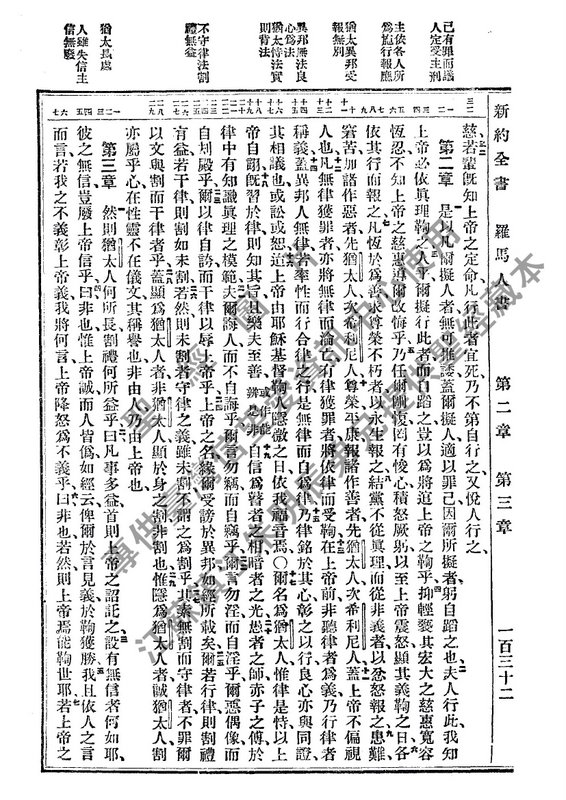 新約全書 羅馬人書 第二章 第三章 一百三十二
己有罪而議人定受主刑
主依各人所為施行報應
猶太異邦受報無別
異邦無法良心為法
猶太恃法實則背法
不守律法割禮無益
猶太長處
人雖失信主信無廢
慈若輩既知上帝之定命凡行此者宜死乃不第自行之又悅人行之
第二章 是以凡爾擬人者無可推諉蓋爾擬人適以罪己因爾所擬者躬自蹈之也夫人行此我知
上帝必依真理鞫之人乎爾擬行此者而自蹈之豈以為將逭上帝之鞫乎抑輕褻其宏大之慈惠寬容
恆忍不知上帝之慈惠導爾改悔乎乃任爾剛愎罔有悛心積怒厥躬以至上帝震怒顯其義鞫之日各
依其行而報之凡恆於為善求尊榮不朽者以永生報之結黨不從真理而從非義者以忿怒報之患難
窘苦加諸作惡者先猶太人次希利尼人尊榮平康報諸作善者先猶太人次希利尼人蓋上帝不偏視
人也凡無律獲罪者亦將無律而淪亡有律獲罪者將依律而受鞫在上帝前非聽律者為義乃行律者
稱義蓋異邦人無律若率性而行合律之行是無律而自為律乃律銘於其心彰之以行良心亦與同證
其相議也或訟或恕迨上帝由耶穌基督鞫人隱微之日依我福音焉〇爾名為猶太人惟律是恃以上
帝自詡既習於律則知其旨且樂夫至善 或作能辨是非 自信為瞽者之相暗者之光愚者之師赤子之傅於
律中有知識真理之模範夫爾誨人而不自誨乎爾言勿竊而自竊乎爾言勿淫而自淫乎爾惡偶像而
自刦殿乎爾以律自誇而干律以辱上帝乎上帝之名緣爾受謗於異邦如經所載矣爾若行律則割禮
有益若干律則割如未割若然則未割者守律之義雖未割不謂之為割乎其素無割而守律者不罪爾
以文與割而干律者乎蓋顯為猶太人者非猶太人顯於身之割非割也惟隱為猶太人者誠猶太人割
亦屬乎心在性靈不在儀文其稱譽也非由人乃由上帝也
第三章 然則猶太人何所長割禮何所益乎曰凡事多益首則上帝之詔託之設有無信者何如耶
彼之無信豈廢上帝信乎曰非也惟上帝誠而人皆偽如經云俾爾於言見義於鞫獲勝我且依人之言
而言若我之不義彰上帝義我將何言上帝降怒為不義乎曰非也若然則上帝焉能鞫世耶若上帝之